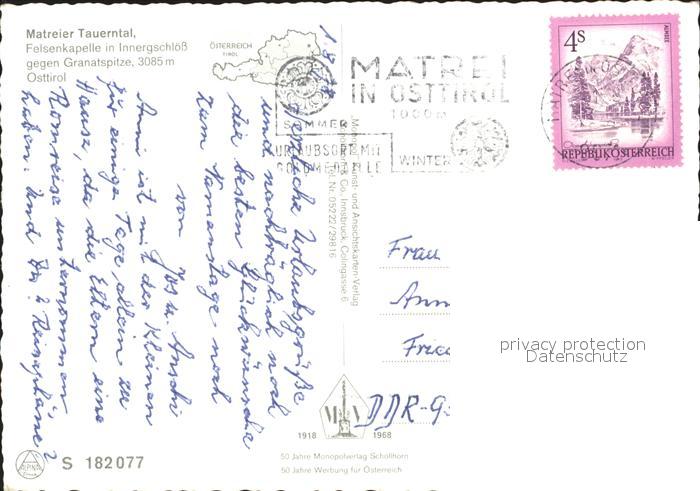 Matreier Tauerntal,
Felsenkapelle in Innergschlöß
gegen Granatspitze, 3085 m
Osttirol
ÖSTERREICH
TIROL
MATREI
IN OSTTIROL
1000 m
SOMMER
URLAUBSORT MIT
GOLDMEDAILLE
WINTER
4S
ALMSEE
REPUBLIK ÖSTERREICH
Herzliche Urlaubsgrüße
und nachträglich noch
die besten Glückwünsche
zum Namenstage noch
von Jos u. Anschi
Anni ist mit der Kleinen
für einige Tage allein zu
Hause, da die Eltern eine
Romreise unternommen
haben. Und Du? Reisepläne?
Kunst- und Ansichtskarten-Verlag
& Co, Innsbruck, Colingasse 6
Tel. Nr. 05222/29816
Frau
Ann
Frie
DDR-9
privacy protection
Datenschutz
M V
1918 1968
50 Jahre Monopolverlag Schollhorn
50 Jahre Werbung für Österreich
ALPINA
S 182077